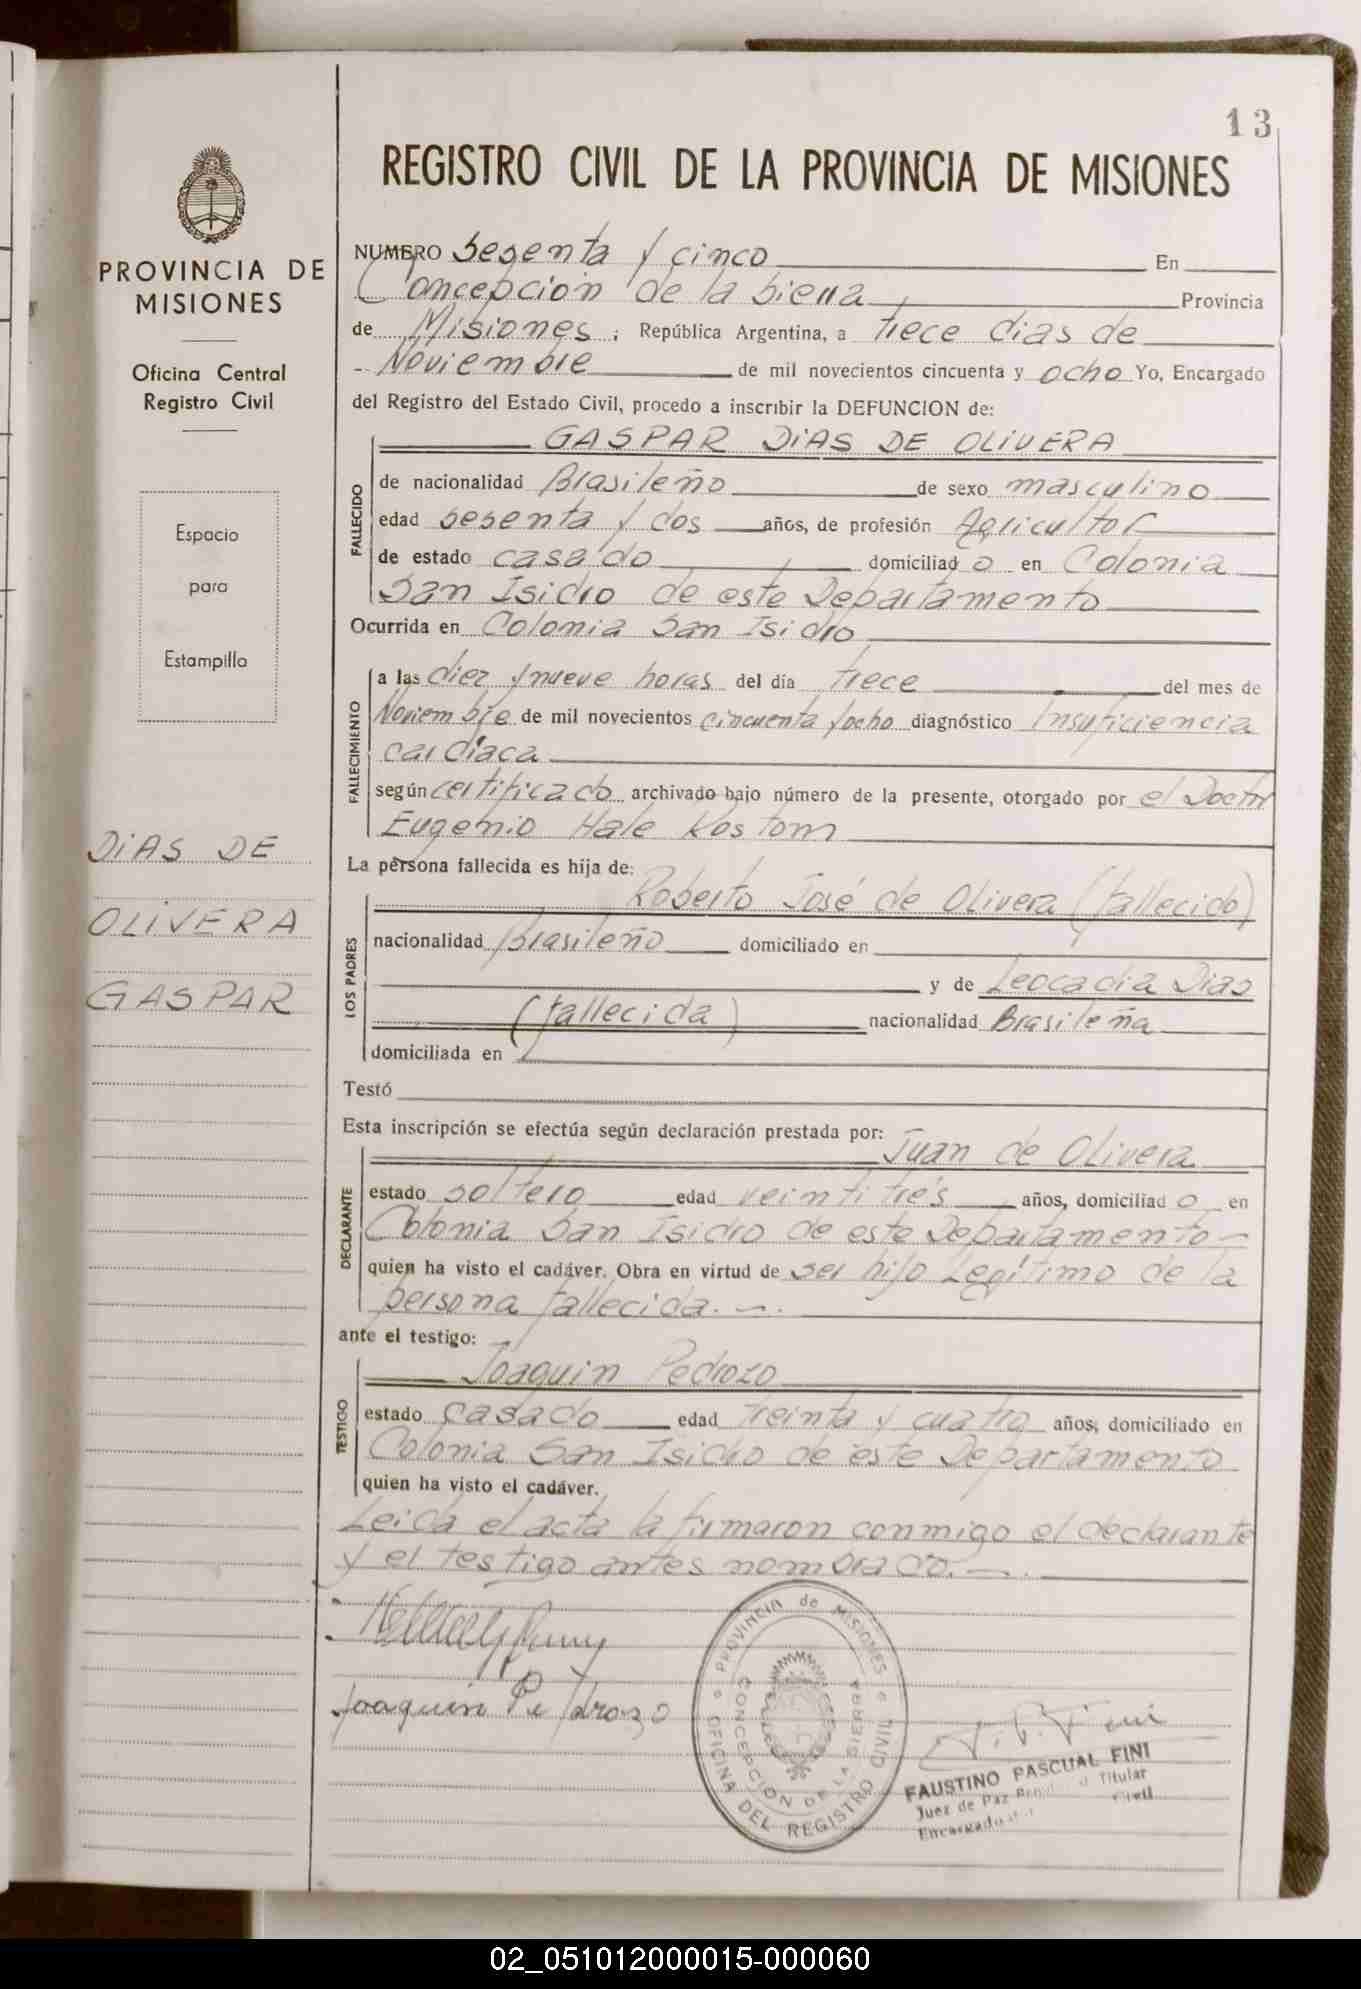 13
REGISTRO CIVIL DE LA PROVINCIA DE MISIONES
PROVINCIA DE
MISIONES
Oficina Central
Registro Civil
Espacio
para
Estampilla
DIAS DE
OLIVERA
GASPAR
NUMERO Sesenta y cinco En
Concepción de la Sierra Provincia
de Misiones ; República Argentina, a trece dias de
Noviembre de mil novecientos cincuenta y ocho Yo, Encargado
del Registro del Estado Civil, procedo a inscribir la DEFUNCION de:
GASPAR DIAS DE OLIVERA
FALLECIDO
de nacionalidad Brasileño de sexo masculino
edad sesenta y dos años, de profesión Agricultor
de estado casado domiciliado en Colonia
San Isidro de este Departamento
Ocurrida en Colonia San Isidro
FALLECIMIENTO
a las diez y nueve horas del día trece del mes de
Noviembre de mil novecientos cincuenta y ocho diagnóstico Insuficiencia
cardiaca
según certificado archivado bajo número de la presente, otorgado por el Doctor
Eugenio Hale Rostom
La persona fallecida es hija de:
Roberto José de Olivera (fallecido)
LOS PADRES
nacionalidad Brasileño domiciliado en
y de Leocadia Dias
(fallecida) nacionalidad Brasileña
domiciliada en
Testó
Esta inscripción se efectúa según declaración prestada por:
Juan de Olivera
DECLARANTE
estado soltero edad veintitrés años, domiciliado en
Colonia San Isidro de este Departamento
quien ha visto el cadáver. Obra en virtud de ser hijo Legítimo de la
persona fallecida.
ante el testigo:
Joaquin Pedrozo
TESTIGO
estado casado edad treinta y cuatro años, domiciliado en
Colonia San Isidro de este Departamento
quien ha visto el cadáver.
Leida el acta la firmaron conmigo el declarante
y el testigo antes nombrado.
Joaquin Pedrozo
PROVINCIA de MISIONES
OFICINA DEL REGISTRO CIVIL
CONCEPCION DE LA SIERRA
FAUSTINO PASCUAL FINI
Juez de Paz Titular
Encargado Civil
02_051012000015-000060